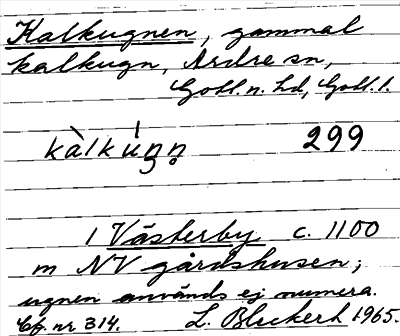 Kalkugnen, gammal
kalkugn, Ardre sn,
Gotl. n. hd, Gotl. l.
kàlkúŋn̥ 299
1 Västerby c. 1100
m NV gårdshusen;
ugnen används ej numera.
Cf. nr 314. L. 1965.